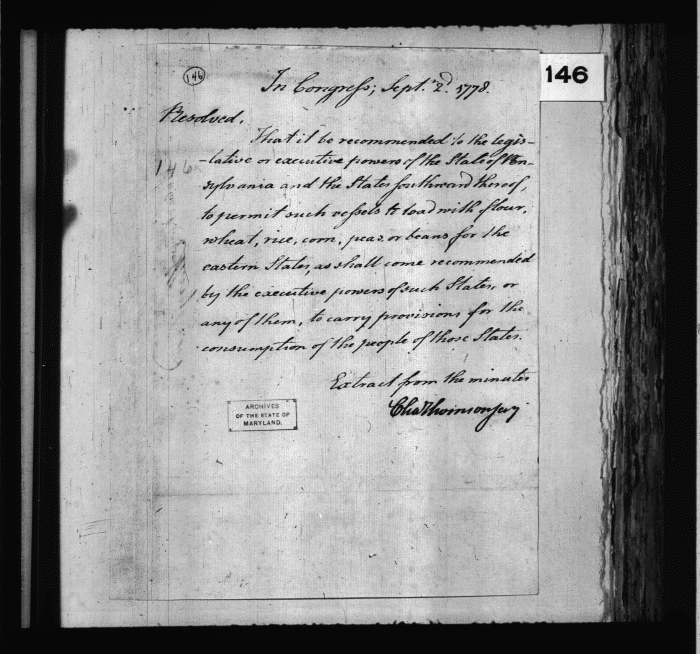 146
146
In Congress, Sept. 2d. 1778.
Resolved,
That it be recommended to the legis-
-lative or executive powers of the State of Pen-
sylvania and the States southward thereof,
to permit such vessels to load with flour,
wheat, rice, corn, peas or beans for the
eastern States, as shall come recommended
by the executive powers of such States, or
any of them, to carry provisions for the
consumption of the people of those States.
Extract from the minutes
Chas Thomson secy
146
ARCHIVES
OF THE STATE OF
MARYLAND.